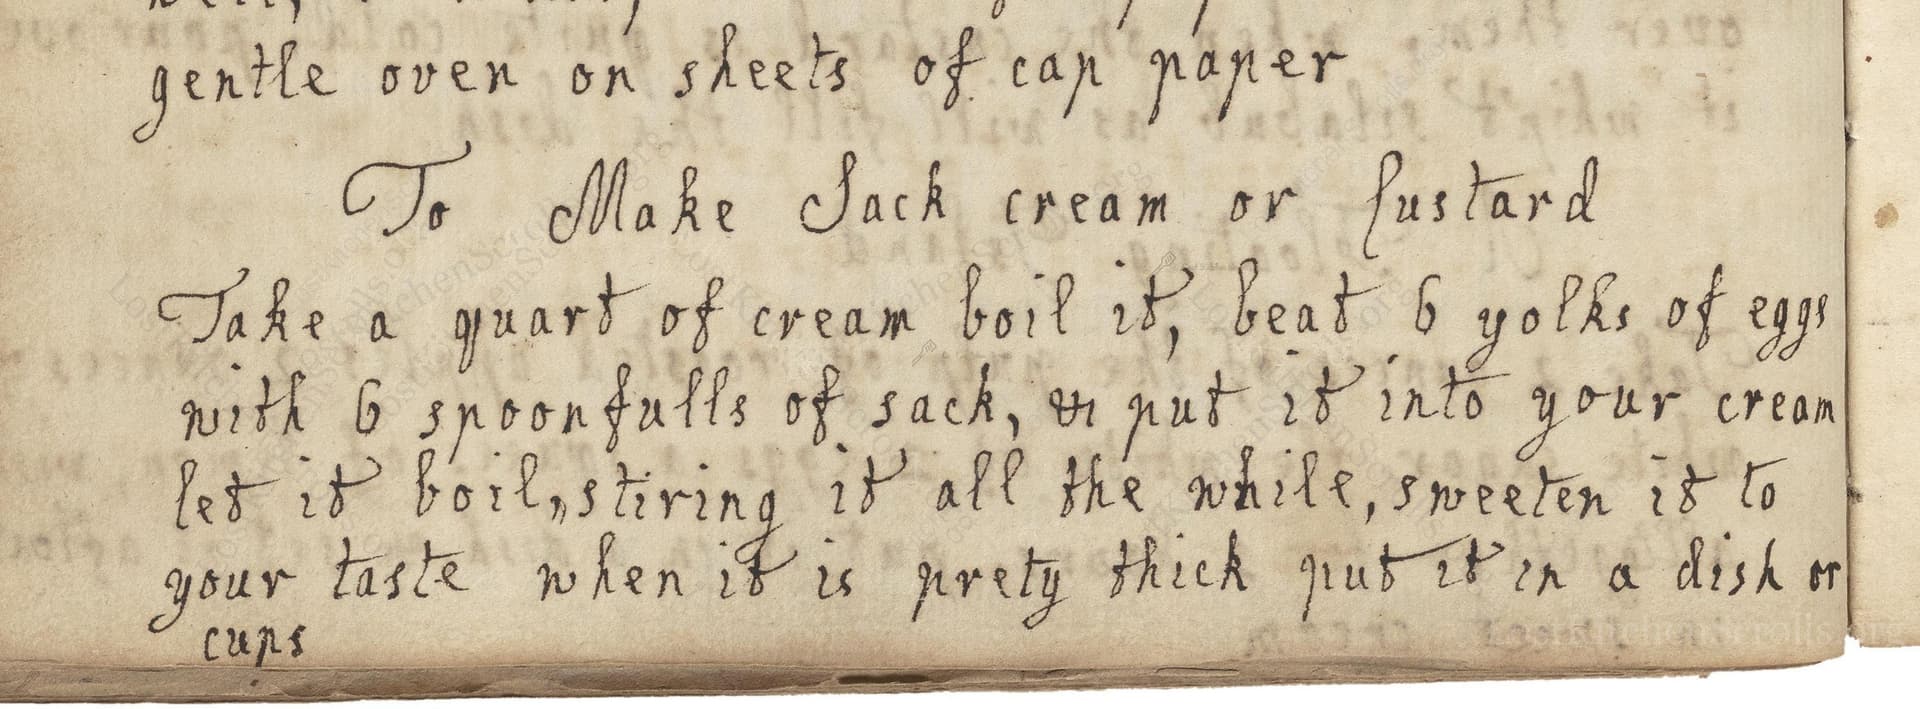 gentle oven on sheets of cap paper
To Make Sack cream or Custard
Take a quart of cream boil it, beat 6 yolks of eggs
with 6 spoonfulls of sack, & put it into your cream
let it boil, stiring it all the while, sweeten it to
your taste when it is prety thick put it in a dish or
cups